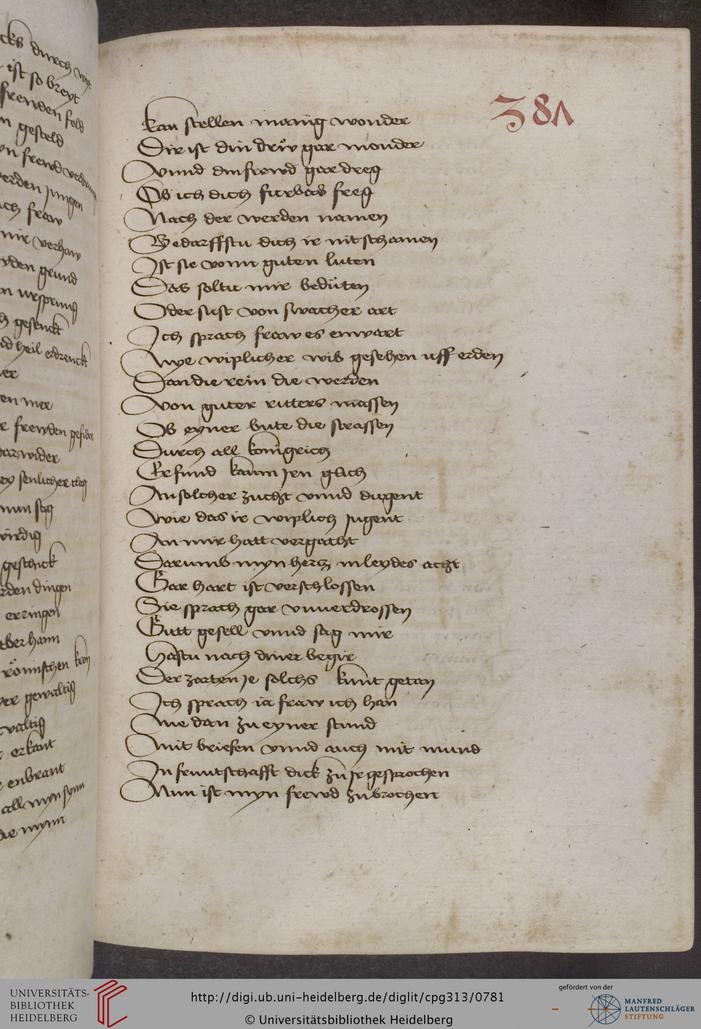 381
kan stellen manig wonder
Dir ist din drüw gar monder
Vnnd din frewd gar dreg
Ob ich dich furbas freg
Nach der werden namen
Bedarffstu dich ir nit schamen
Ist sie vonn guten luten
Das soltu mir bedüten
Oder sust von swacher art
Ich sprach fraw es enwart
Nye wiplicher wib gesehen uff erden
Dan die rein die werden
Von guter ritters massen
Ob eyner bute die strassen
Durch all konigrich
Er fund kaum jren glich
An solcher zucht vnnd dugent
Wie das ir wiplich jugent
An mir hatt vergacht
Darumb myn hertz in leydes acht
Gar hart ist verschlossen
Sie sprach gar vnuerdrossen
Gutt gesell vnnd sag mir
hastu nach diner begir
Der zarten je solchs kunt getan
Ich sprach ia fraw ich han
Me dan zu eyner stund
Mit briefen vnnd auch mit mund
In fruntschafft dick zu jr gesprochen
Nun ist myn frewd zubrochen
cks durch
ist so breyt
frewden feld
gesteld
frewd
werden jungen
ich fraw
mir verhaw
grund
vrsprung
geschickt
heil
er
mer
frewden
wider
senlicher clag
nun sag
wirdig
geschick
dingen
erringen
aber hann
römischen
gewaltig
valtig
erkant
enbrant
all myn synn
die mynn
UNIVERSITÄTS-
BIBLIOTHEK
HEIDELBERG
http://digi.ub.uni-heidelberg.de/diglit/cpg313/0781
© Universitätsbibliothek Heidelberg
gefördert von der
MANFRED
LAUTENSCHLÄGER
STIFTUNG